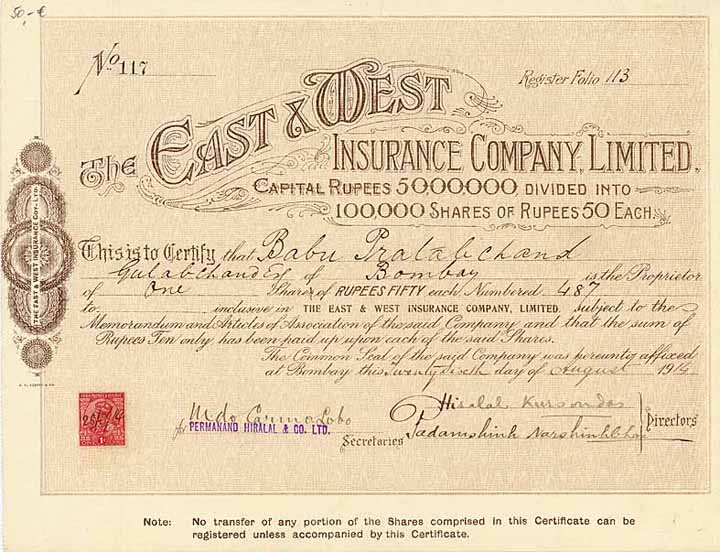 50,-€
No 117
Register Folio 113
The EAST & WEST
INSURANCE COMPANY, LIMITED.
CAPITAL RUPEES 50,00,000 DIVIDED INTO
100,000 SHARES OF RUPEES 50 EACH.
THE EAST & WEST INSURANCE COY. LTD.
This is to Certify that Babu Pratabchand
Gulabchandji of Bombay is the Proprietor
of One Shares of RUPEES FIFTY each, Numbered 487
to inclusive in THE EAST & WEST INSURANCE COMPANY, LIMITED. subject to the
Memorandum and Articles of Association of the said Company and that the sum of
Rupees Ten only has been paid up upon each of the said Shares.
The Common Seal of the said Company was hereunto affixed
at Bombay this Twenty Sixth day of August 1914
Hiralal Kursondas
for PERMANAND HIRALAL & CO. LTD.
Secretaries
Padamshinh Narshinhbhai
Directors
Note: No transfer of any portion of the Shares comprised in this Certificate can be
registered unless accompanied by this Certificate.